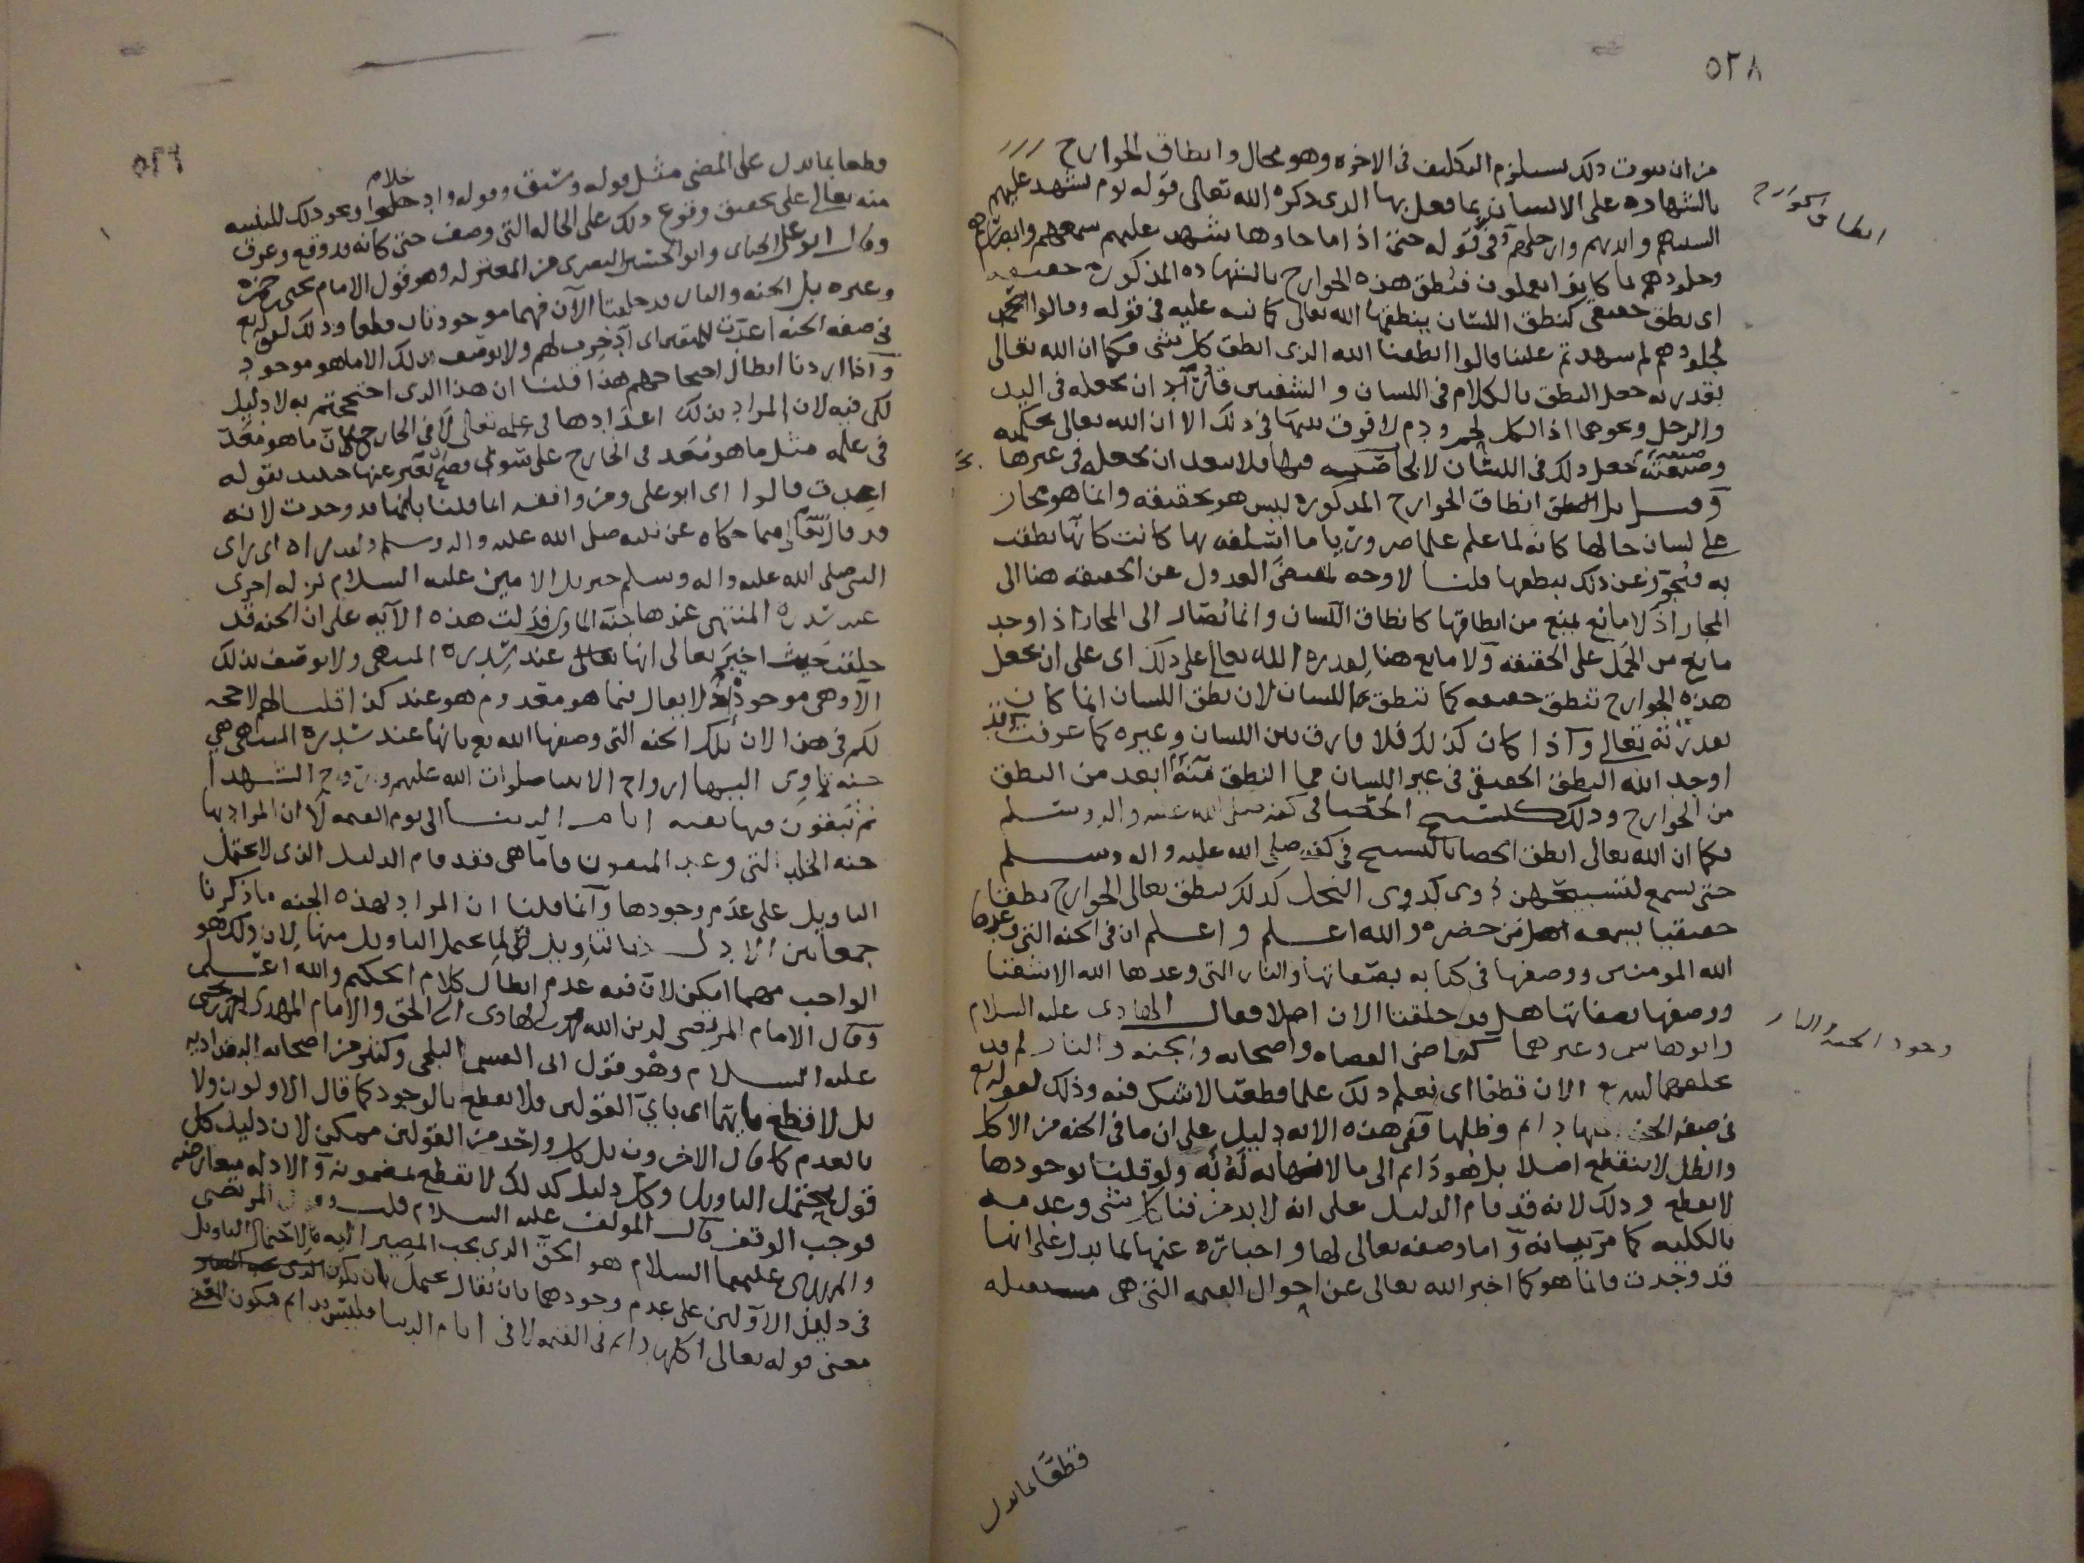 ٥٢٨
من ان ثبوت ذلك يستلزم التكليف في الاخره وهو محال وانطاق الجوارح
انطاق الجوارح
بالشهاده على الانسان بما فعل بها الذى ذكره الله تعالى في قوله يوم تشهد عليهم
السنتهم وايديهم وارجلهم وفي قوله حتى اذا ما جاوها شهد عليهم سمعهم وابصارهم
وجلودهم بما كانوا يعملون فنطق هذه الجوارح بالشهاده المذكوره حقيقه
اى نطق حقيقى كنطق اللسان ينطقها الله تعالى كما نبه عليه في قوله وقالوا
لجلودهم لم شهدتم علينا قالوا انطقنا الله الذى انطق كل شى فكما ان الله تعالى
بقدرته جعل النطق بالكلام في اللسان والشفتين قادر ان يجعله في اليد
والرجل ونحوهما اذ الكل لحم ودم لا فرق بينها في ذلك الا ان الله تعالى بحكمته
وصنعته جعل ذلك في اللسان فلا يبعد ان يجعله في غيرها
وقيل بل انطاق الجوارح المذكوره ليس هو بحقيقه وانما هو مجاز
على لسان حالها كانه لما علم علما ضروريا ما اسلفه بها كانت كانها نطقت
به فتجوز عن ذلك بنطقها قلنا لا وجه لمقتضى العدول عن الحقيقه هنا الى
المجاز اذ لا مانع يمنع من انطاقها كانطاق اللسان وانما يصار الى المجاز اذا وجد
مانع من الحمل على الحقيقه ولا مانع هنا لقدره الله تعالى على ذلك اى على ان يجعل
هذه الجوارح تنطق حقيقه كما تنطق اللسان لان نطق اللسان انما كان
بقدرته تعالى واذا كان كذلك فلا فارق بين اللسان وغيره كما عرفت وقد
اوجد الله النطق الحقيقى في غير اللسان مما النطق منه ابعد من النطق
من الجوارح وذلك كتسبيح الحصا في كفه صلى الله عليه واله وسلم
فكما ان الله تعالى انطق الحصا بالتسبيح في كفه صلى الله عليه واله وسلم
حتى يسمع لتسبيحهن دوى كدوى النحل كذلك ينطق تعالى الجوارح نطقا
حقيقيا يسمعه من حضره والله اعلم واعلم ان في الجنه التى وعدها
الله المومنين ووصفها في كتابه بصفاتها والنار التى وعدها الله الاشقيا
ووصفها بصفاتها هل قد خلقتا الان ام لا فقال الهادى عليه السلام
وجود الجنه والنار
وابو هاشم وغيرهما كقاضى القضاه واصحابه والجنه والنار لم قد
يخلقهما الله تع الان قطعا اى نعلم ذلك علما قطعيا لا شك فيه وذلك لقوله تع
في صفه الجنه اكلها دايم وظلها ففي هذه الايه دليل على ان ما في الجنه من الاكل
والظل لا ينقطع اصلا بل هو دايم الى ما لا نهايه له ولو قلنا بوجودها
لانقطع وذلك لانه قد قام الدليل على انه لا بد من فنا كل شى وعدمه
بالكليه كما مر بيانه واما وصفه تعالى لها واخباره عنها بما يدل على انها
قد وجدت فانما هو كما اخبر الله تعالى عن احوال القيمه التى هى مستقبله
قطعا بما يدل
٥٢٩
قطعا بما يدل على المضى مثل قوله وسيق وقوله وادخلوا ونحو ذلك للتنبيه
منه تعالى على تحقيق وقوع ذلك على الحاله التى وصف حتى كانه قد وقع وعرف
وقال ابو على الجباى وابو الحسين البصرى من المعتزله وهو قول الامام يحيى بن حمزه
وغيره بل الجنه والنار قد خلقتا الآن فهما موجودتان قطعا وذلك لقوله تع
في صفه الجنه اعدت للمتقين اى ادخرت لهم ولا يوصف بذلك الا ما هو موجود
واذا اردنا ابطال احتجاجهم هذا قلنا ان هذا الذى احتججتم به لا دليل
لكم فيه لان المراد بذلك اعدادها في علمه تعالى لا في الخارج لان ما هو معد
في علمه مثل ما هو معد في الخارج على سوى فصح تعبير عنها حينئذ بقوله
اعدت قالوا اى ابو على ومن وافقه انما قلنا بانها قد وجدت لانه
قد قال تعالى فيما حكاه عن نبيه صلى الله عليه واله وسلم ولقد راه اى راى
النبى صلى الله عليه واله وسلم جبريل الامين عليه السلام نزله اخرى
عند سدره المنتهى عندها جنه الماوى فدلت هذه الآيه على ان الجنه قد
خلقت حيث اخبر تعالى انها عند سدره المنتهى ولا يوصف بذلك
الا وهى موجوده اذ لا يقال فيما هو معدوم هو عند كذا قلنا لهم لا حجه
لكم في هذا لان تلك الجنه التى وصفها الله تع بانها عند سدره المنتهى هى
جنه تاوى اليها ارواح الانبيا صلوات الله عليهم وارواح الشهدا
ثم تبقون فيها بقيه ايام الدنيا الى يوم القيمه لا ان المراد بها
جنه الخلد التى وعد المتقون فاما هى فقد قام الدليل الذى لا يحتمل
التاويل على عدم وجودها وانما قلنا ان المراد بهذه الجنه ما ذكرنا
جمعا بين الادله بالتاويل لما يحتمل التاويل منها لان ذلك هو
الواجب مهما امكن لان فيه عدم ابطال كلام الحكيم والله اعلم
وقال الامام المرتضى لدين الله محمد بن الهادى الى الحق والامام المهدى احمد بن يحيى
عليه السلام وهو قول ابى القسم البلخى وكثير من اصحابه البغداديه
بل لا قطع بايهما اى باى القولين فلا نقطع بالوجود كما قال الاولون ولا
بالعدم كما قال الاخرون بل كل واحد من القولين ممكن لان دليل كل
قول يحتمل التاويل وكل دليل كذلك لا نقطع بمضمونه والادله متعارضه
فوجب الوقف قال المولف عليه السلام قلت وقول المرتضى
والمهدى عليهما السلام هو الحق الذى يجب المصير اليه لاحتمال التاويل
في دليل الاولين على عدم وجودهما بان يقال يحتمل بان يكون
معنى قوله تعالى اكلها دايم في القيمه لا في ايام الدنيا فليس بدايم فيكون